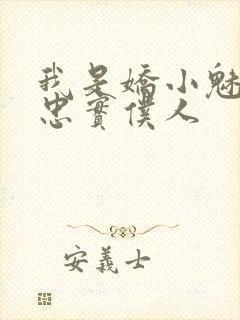 我是嬌小魅
忠實僕人
安義士